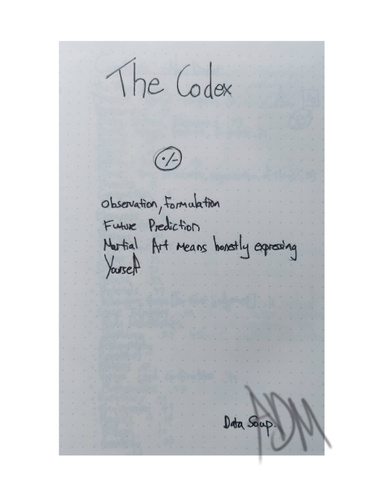 The Codex
·/-
Observation, Formulation
Future Prediction
Martial Art Means honestly expressing
Yourself
Data Soup.
ADM